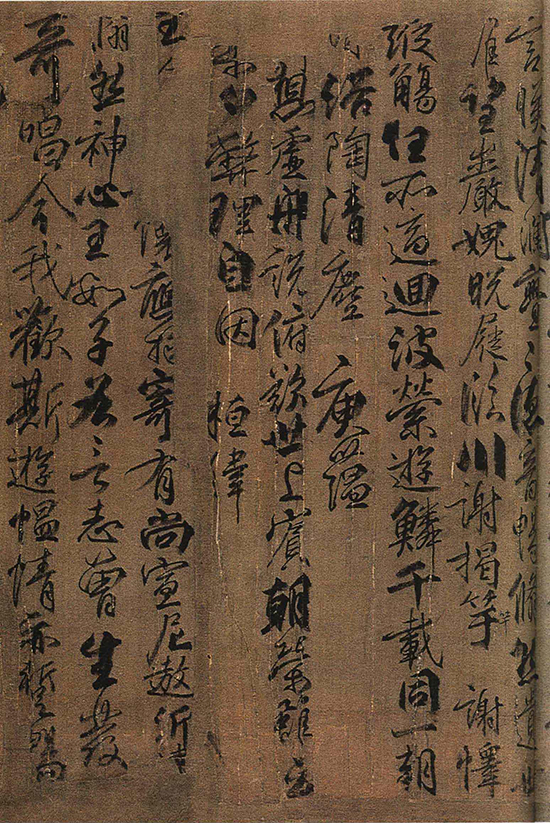 言暎清瀾亹〻德音暢悠然遺世
望巖愧脫屣臨川謝揭竿 謝懌
縱觴任所適迴波縈遊鱗千載同一朝
沐浴陶清塵 庾蘊
想虛舟說俯歎世上賓朝榮雖云
樂夕弊理自因 桓偉
主人 懷應物寄有尚宣尼遨沂津
翛然神心王數子各言志曾生發
奇唱今我歡斯遊慍情亦蹔暢